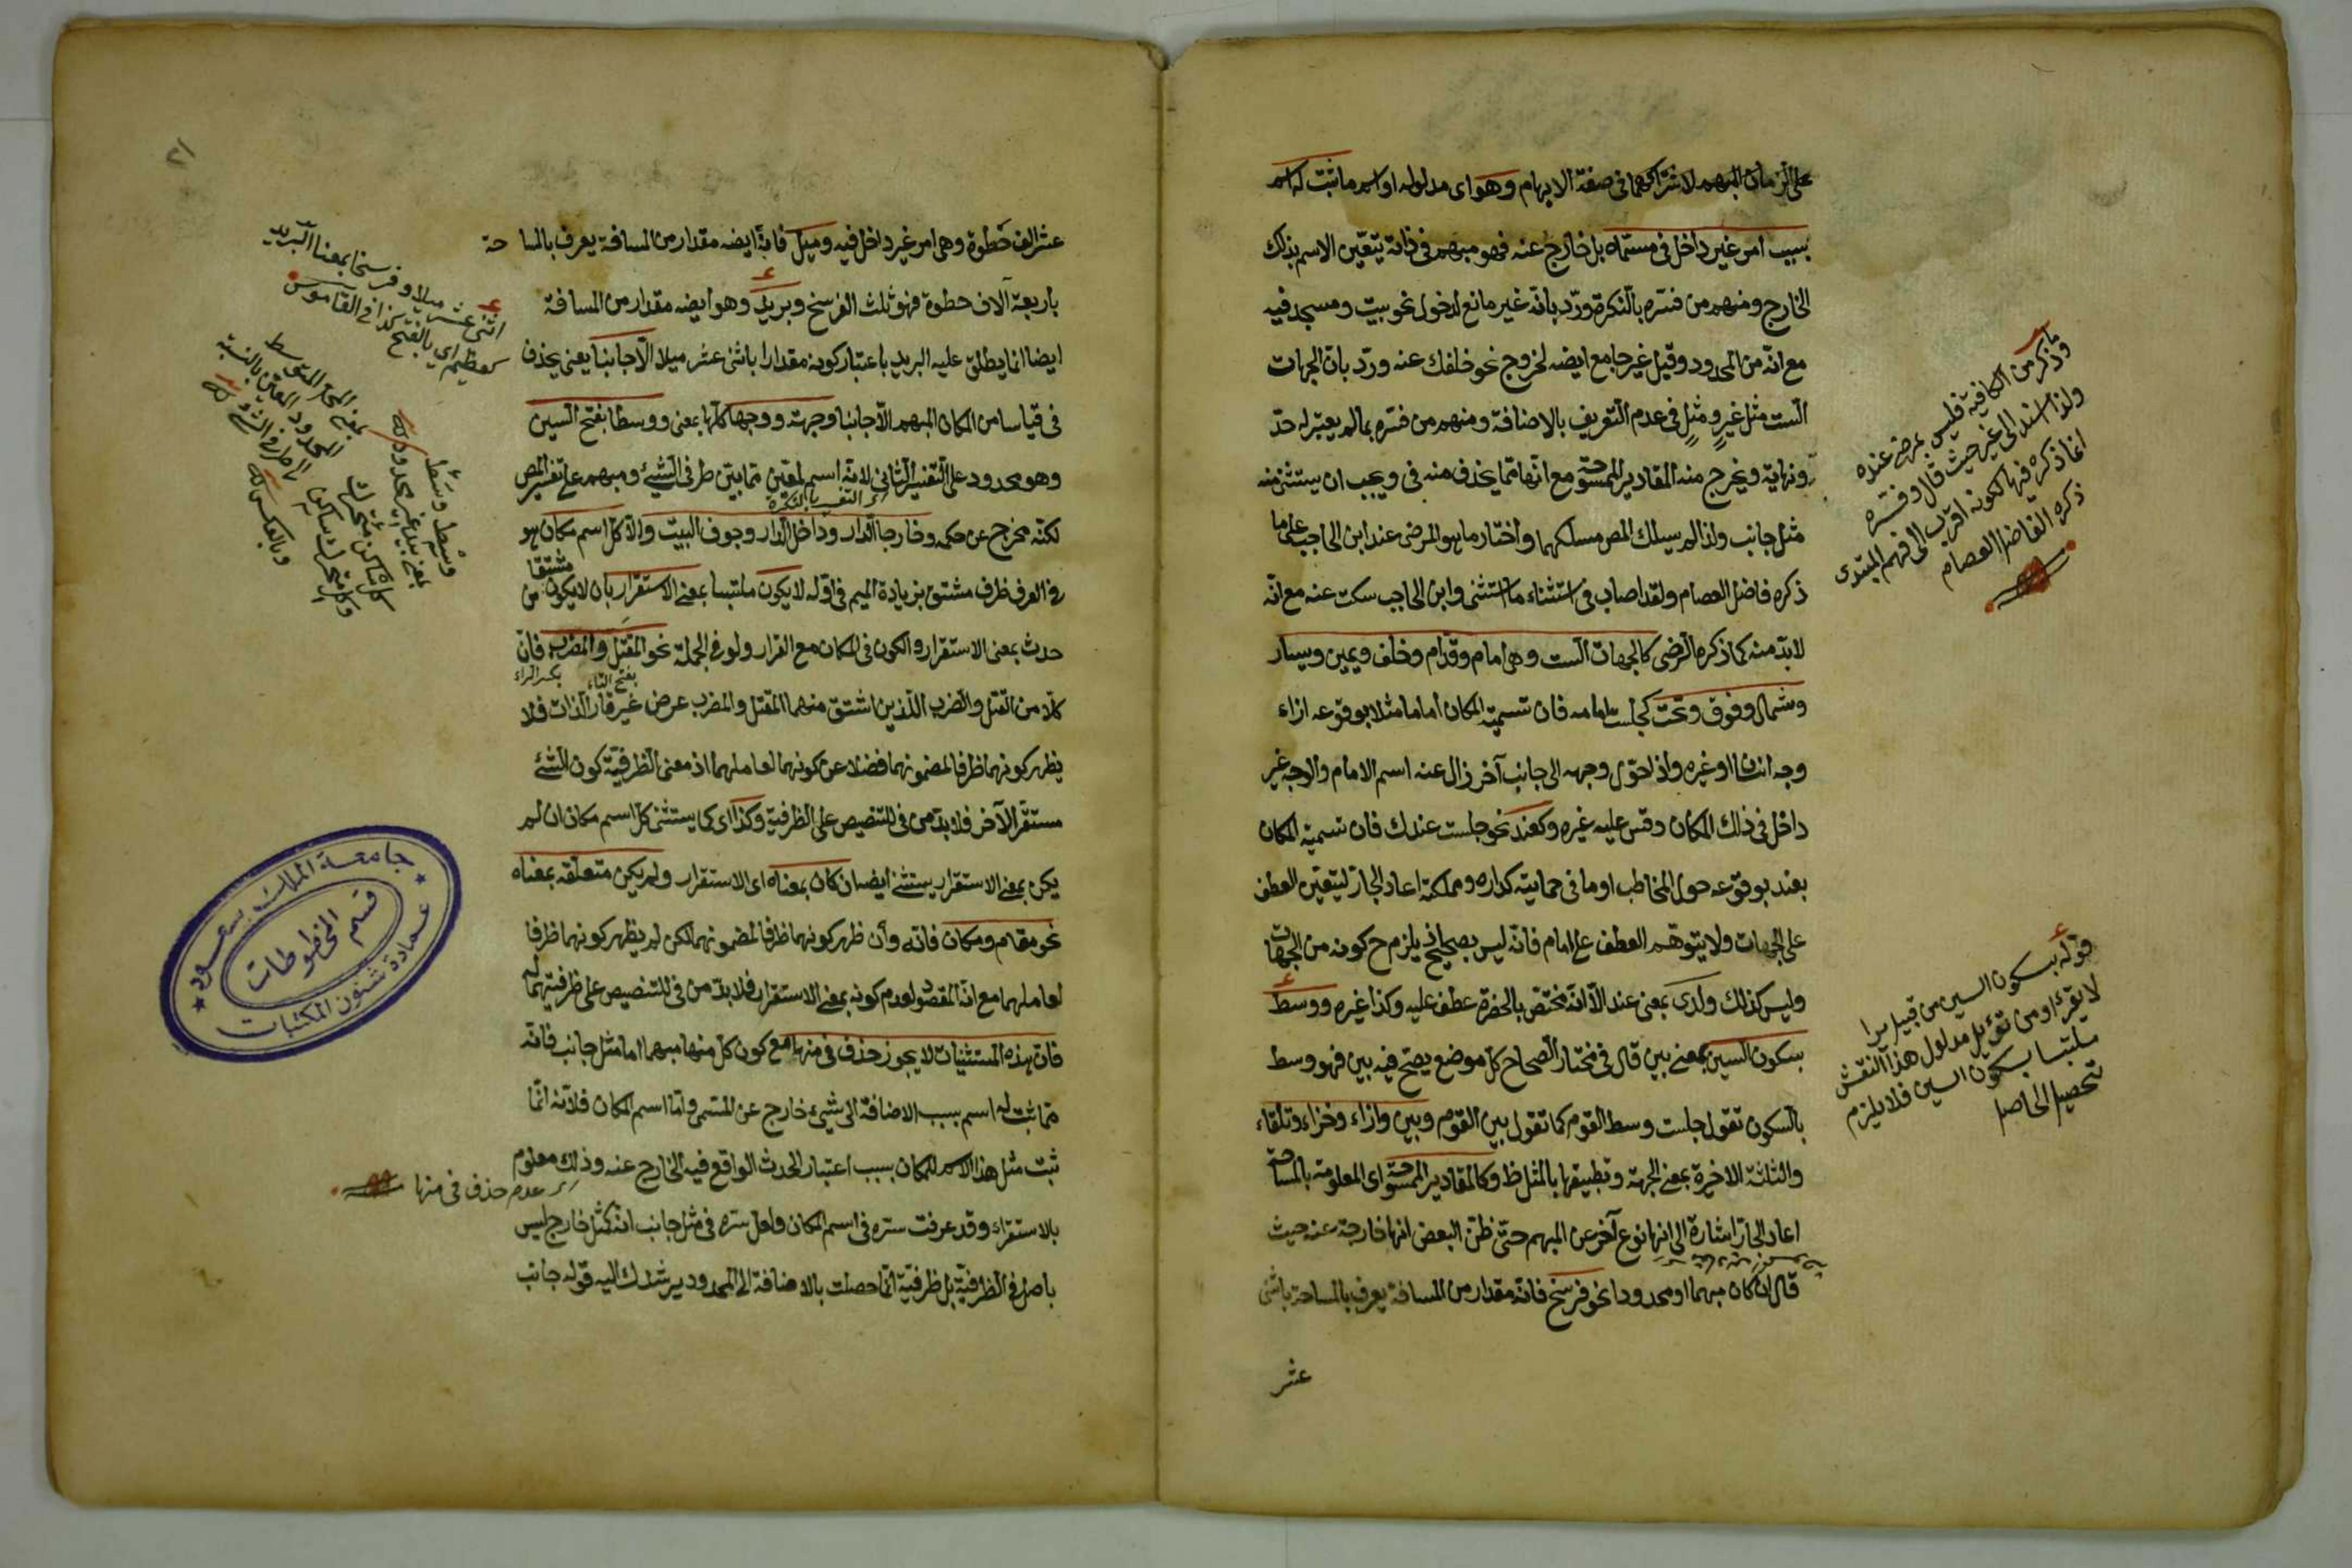 على الزمان المبهم لاشتراكهما في صفة الابهام وهو اى مدلوله او اسم ما ثبت له اسم
بسبب امر غير داخل في مسماه بل خارج عنه فهو مبهم في ذاته يتعين الاسم بذلك
الخارج ومنهم من فسره بالنكرة ورد بانه غير مانع لدخول نحو بيت ومسجد فيه
مع انه من المحدود وقيل غير جامع ايضه لخروج نحو خلفك عنه ورد بان الجهات
الست مثل غير ومثل في عدم التعريف بالاضافة ومنهم من فسره بما لم يعتبر له حد
ونهاية ويخرج منه المقادير الممسوحة مع انها مما يحذف منه في ويجب ان يستثنى منه
مثل جانب ولذا لم يسلك المص مسلكهما واختار ما هو المرضى عند ابن الحاجب على ما
ذكره فاضل العصام ولقد اصاب في استثناء ما استثنى وابن الحاجب سكت عنه مع انه
لا بد منه كما ذكره الرضى كالجهات الست وهى امام وقدام وخلف ويمين ويسار
وشمال وفوق وتحت كجلست امامه فان تسمية المكان اماما مثلا بوقوعه ازاء
وجه انسان او غيره واذا حول وجهه الى جانب آخر زال عنه اسم الامام والاجه غير
داخل في ذلك المكان وقس عليه غيره وكعند نحو جلست عندك فان تسمية المكان
بعند بوقوعه حول المخاطب او ما في حمايته كداره ومملكته اعاد الجار ليتعين العطف
على الجهات ولا يتوهم العطف على امام فانه ليس بصحيح اذ يلزم ح كونه من الجهات
وليس كذلك ولدى بمعنى عند الا انه مختص بالحضرة عطف عليه وكذا غيره ووسط
بسكون السين بمعنى بين قال في مختار الصحاح كل موضع يصح فيه بين فهو وسط
بالسكون تقول جلست وسط القوم كما تقول بين القوم وبين وازاء وحذاء وتلقاء
والثلثة الاخيرة بمعنى الجهة وتطبيقها بالمثل ظ وكالمقادير الممسوحة اى المعلومة بالمساحة
اعاد الجار اشارة الى انها نوع آخر عن المبهم حتى ظن البعض انها خارجة عنه حيث
قال ان كان مبهما او محدودا نحو فرسخ فانه مقدار من المسافة يعرف بالمساحة باثنى
عشر
وذكر من الكافية فليس بمرضى عنده
ولذا اسند الى غير حيث قال وفسره
انما ذكره فيها لكونه اقرب الى فهم المبتدى
ذكره الفاضل العصام
قوله بسكون السين من قبيل
لا يقرء او من تؤيل مدلول هذا النقش
ملتبسا بسكون السين فلا يلزم
تحصيل الحاصل
٢١
عشر الف خطوة وهى امر غير داخل فيه وميل فانه ايضه مقدار من المسافة يعرف بالمساحة
باربعة آلاف خطوة فهو ثلث الفرسخ وبريد وهو ايضه مقدار من المسافة
ايضا انما يطلق عليه البريد باعتبار كونه مقدارا باثنى عشر ميلا الا جانبا يعنى يحذف
في قياسا من المكان المبهم الا جانبا وجهة ووجها كلها بمعنى ووسطا بفتح السين
وهو محدود على التفسير الثانى لانه اسم لمعين مما بين طرفى الشيء ومبهم على تفسير المص
اى التفسير بالنكرة
لكنه مخرج عن حكمه وخارجا الدار وداخل الدار وجوف البيت والا كل اسم مكان هو
في العرف ظرف مشتق بزيادة الميم في اوله لا يكون ملتبسا بمعنى الاستقرار بان لا يكون مشتقا من
حدث بمعنى الاستقرار والكون في المكان مع القرار ولو في الجملة نحو المقتل والمضرب فان
بفتح التاء بكسر الراء
كلا من القتل والضرب اللذين اشتق منهما المقتل والمضرب عرض غير قار الذات فلا
يظهر كونهما ظرفا لمضمونهما فضلا عن كونهما لعاملهما اذ معنى الظرفية كون الشئ
مستقرا لآخر فلا بد من في للتنصيص على الظرفية وكذا اى كما يستثنى كل اسم مكان ان لم
يكن بمعنى الاستقرار يستثنى ايضا ان كان بمعناه اى الاستقرار ولم يكن متعلقه بمعناه
نحو مقام ومكان فانه وان ظهر كونهما ظرفا لمضمونهما لكن لم يظهر كونهما ظرفا
لعاملهما مع انه المقصود لعدم كونه بمعنى الاستقرار فلا بد من في للتنصيص على ظرفيتهما له
فان هذه المستثنيات لا يجوز حذف في منها مع كون كل منها مبهما اما مثل جانب فانه
مما ثبت له اسم بسبب الاضافة الى شيء خارج عن المسمى واما اسم المكان فلانه انما
ثبت مثل هذا الاسم للمكان بسبب اعتبار الحدث الواقع فيه الخارج عنه وذلك معلوم
اى عدم حذف في منها
بالاستقراء وقد عرفت سره في اسم المكان ولعل سره في مثل جانب انه كمثل خارج ليس
باصل في الظرفية بل ظرفية انما حصلت بالاضافة الى المحدود يرشدك اليه قوله جانب
اثنى عشر ميلا وفرسخا بمعنا البريد
كعظيم اى بالفتح كذا في القاموس
وسط وسط
بمعنى بين غير محدود
كل ساكن متحرك
وكل متحرك ساكن
وبالعكس
جامعة الملك سعود
قسم المخطوطات
عمادة شئون المكتبات